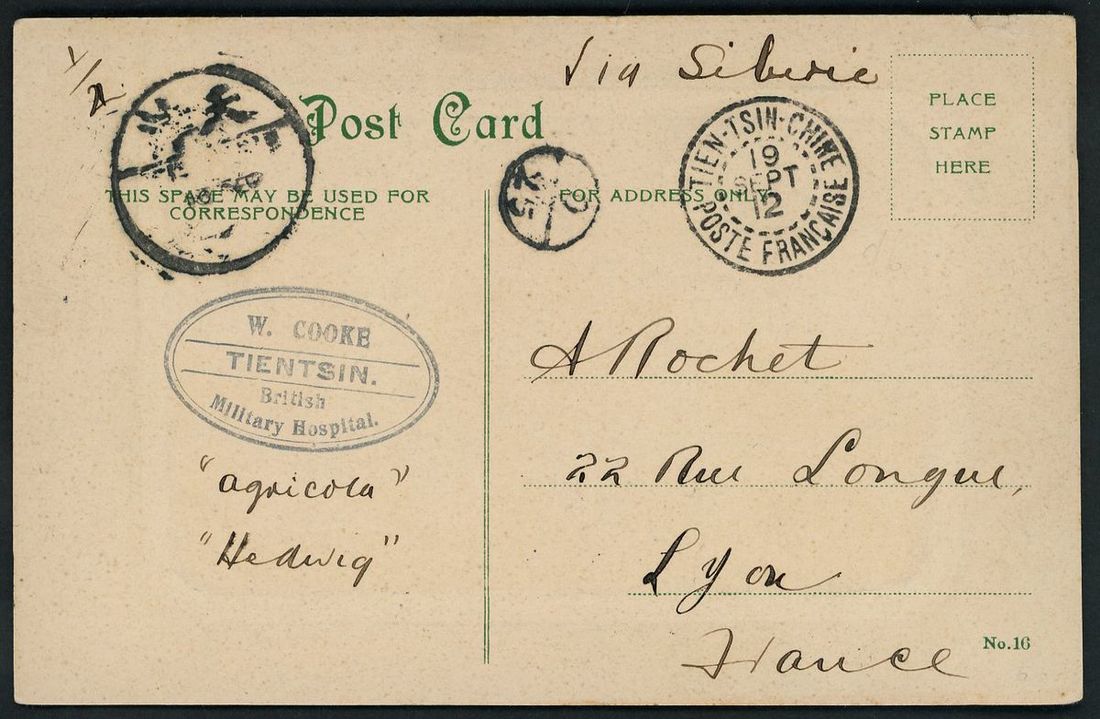 Via Siberie
Post Card
PLACE
STAMP
HERE
THIS SPACE MAY BE USED FOR
CORRESPONDENCE
FOR ADDRESS ONLY.
TIEN-TSIN-CHINE
19
SEPT
12
POSTE FRANÇAISE
25
W. COOKE
TIENTSIN.
British
Military Hospital.
"agricola"
"Hedwig"
A Rochet
22 Rue Longue,
Lyon
France
No.16